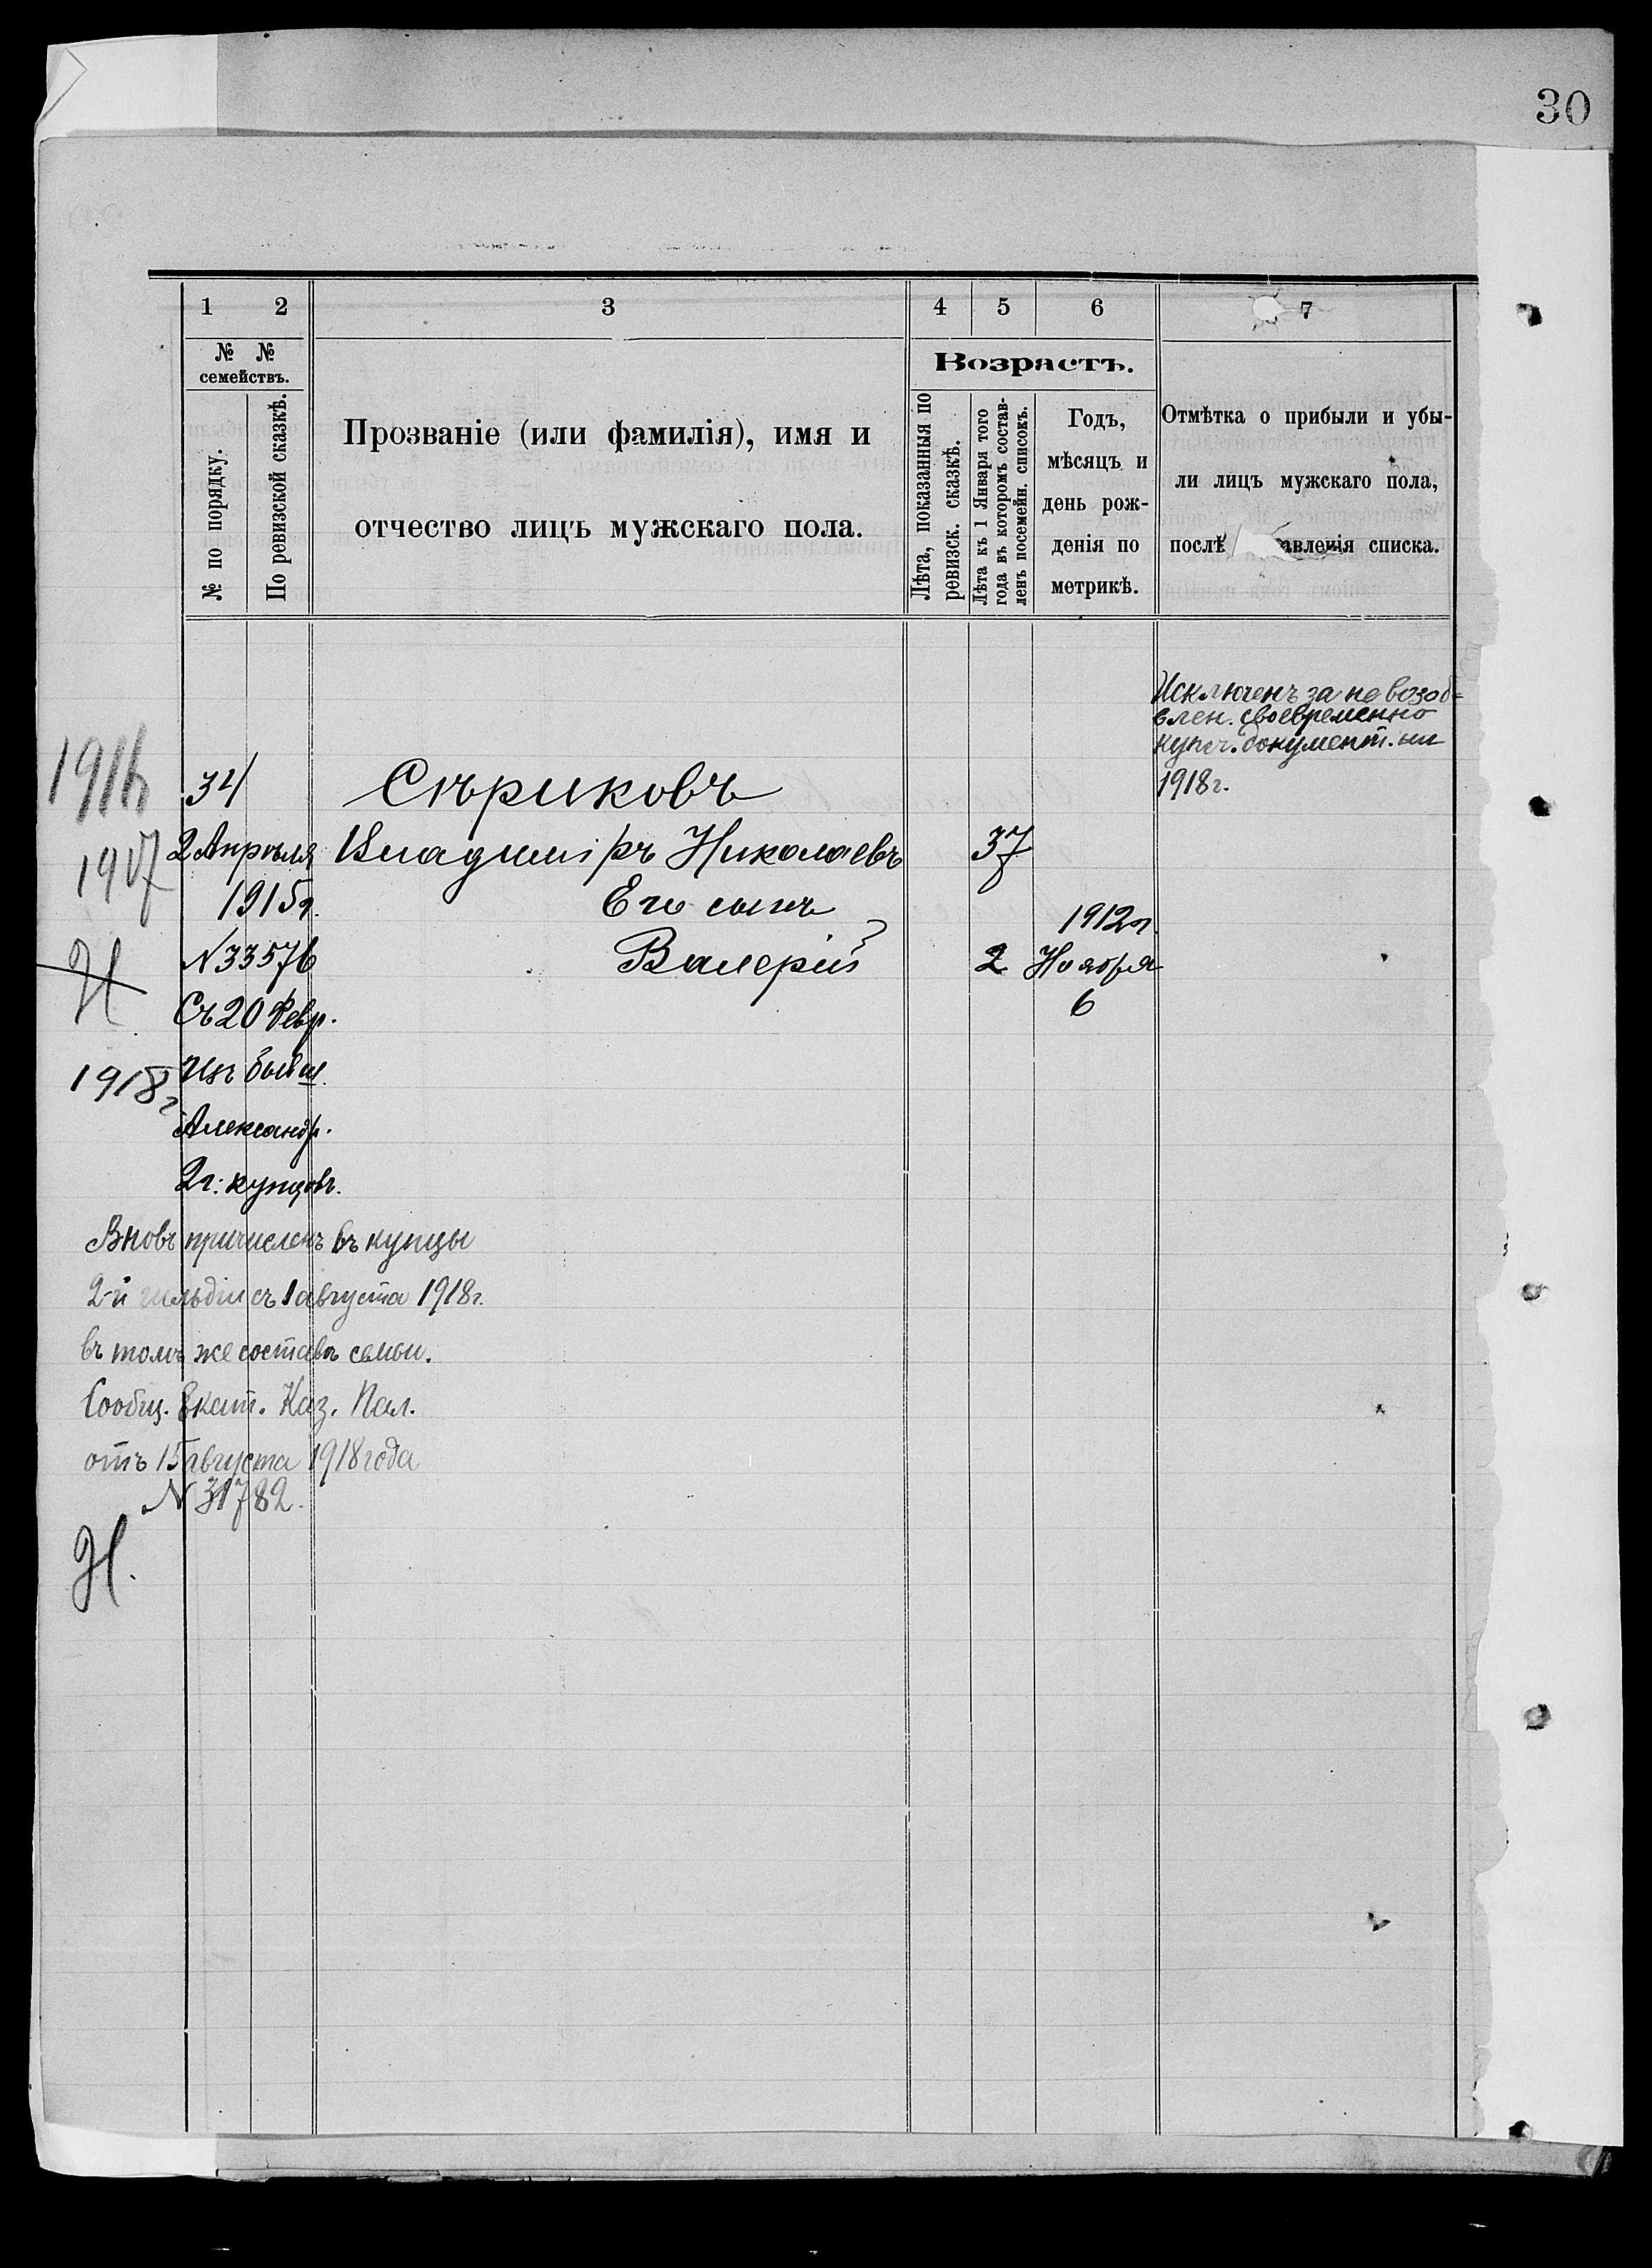 30
1 2 3 4 5 6 7
№ №
семействъ.
№ по порядку.
По ревизской сказкѣ.
Прозваніе (или фамилія), имя и
отчество лицъ мужскаго пола.
Возрастъ.
Лѣта, показанныя по
ревизск. сказкѣ.
Лѣта къ 1 Января того
года въ которомъ состав-
ленъ посемейн. списокъ.
Годъ,
мѣсяцъ и
день рож-
денія по
метрикѣ.
Отмѣтка о прибыли и убы-
ли лицъ мужскаго пола,
послѣ авленія списка.
Исключенъ за не возоб-
влен. своевременно
купеч. документ. на
1918 г.
1916
34 Сѣриковъ
1917
2 Апрѣля Владиміръ Николаевъ 37
1915 г. Его сынъ 1912 г.
Н
N 33576 Валерій 2 Ноября
Съ 20 Февр. 6
1918 г
изъ бывш.
Александр.
2 г. купцовъ.
Вновь причисленъ въ купцы
2-й гильдіи съ 1 августа 1918 г.
въ томъ же составѣ семьи.
Сообщ. Екат. Каз. Пал.
отъ 15 августа 1918 года
N 31782.
Н.